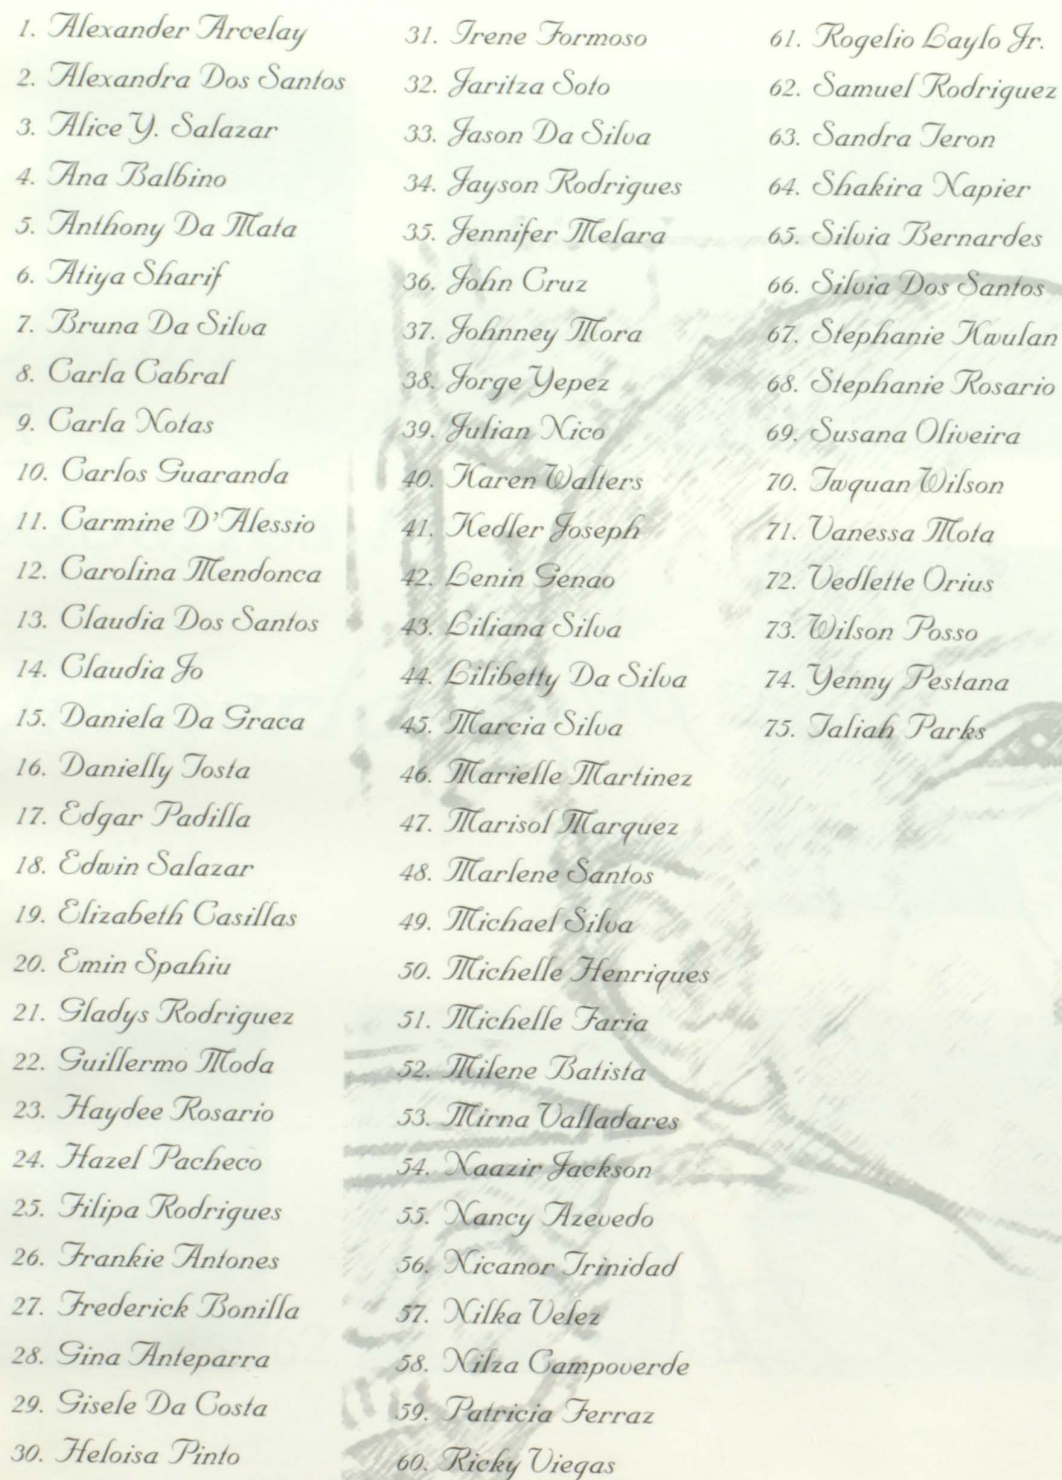 1. Alexander Arcelay
2. Alexandra Dos Santos
3. Alice Y. Salazar
4. Ana Balbino
5. Anthony Da Mata
6. Atiya Sharif
7. Bruna Da Silva
8. Carla Cabral
9. Carla Notas
10. Carlos Guaranda
11. Carmine D'Alessio
12. Carolina Mendonca
13. Claudia Dos Santos
14. Claudia Jo
15. Daniela Da Graca
16. Danielly Tosta
17. Edgar Padilla
18. Edwin Salazar
19. Elizabeth Casillas
20. Emin Spahiu
21. Gladys Rodriguez
22. Guillermo Moda
23. Haydee Rosario
24. Hazel Pacheco
25. Filipa Rodrigues
26. Frankie Antones
27. Frederick Bonilla
28. Gina Anteparra
29. Gisele Da Costa
30. Heloisa Pinto
31. Irene Formoso
32. Jaritza Soto
33. Jason Da Silva
34. Jayson Rodrigues
35. Jennifer Melara
36. John Cruz
37. Johnney Mora
38. Jorge Yepez
39. Julian Nico
40. Karen Walters
41. Kedler Joseph
42. Lenin Genao
43. Liliana Silva
44. Lilibetty Da Silva
45. Marcia Silva
46. Marielle Martinez
47. Marisol Marquez
48. Marlene Santos
49. Michael Silva
50. Michelle Henriques
51. Michelle Faria
52. Milene Batista
53. Mirna Valladares
54. Naazir Jackson
55. Nancy Azevedo
56. Nicanor Trinidad
57. Nilka Velez
58. Nilza Campoverde
59. Patricia Ferraz
60. Ricky Viegas
61. Rogelio Laylo Jr.
62. Samuel Rodriguez
63. Sandra Teron
64. Shakira Napier
65. Silvia Bernardes
66. Silvia Dos Santos
67. Stephanie Kwulan
68. Stephanie Rosario
69. Susana Oliveira
70. Taquan Wilson
71. Vanessa Mota
72. Vedlette Orius
73. Wilson Posso
74. Yenny Pestana
75. Taliah Parks